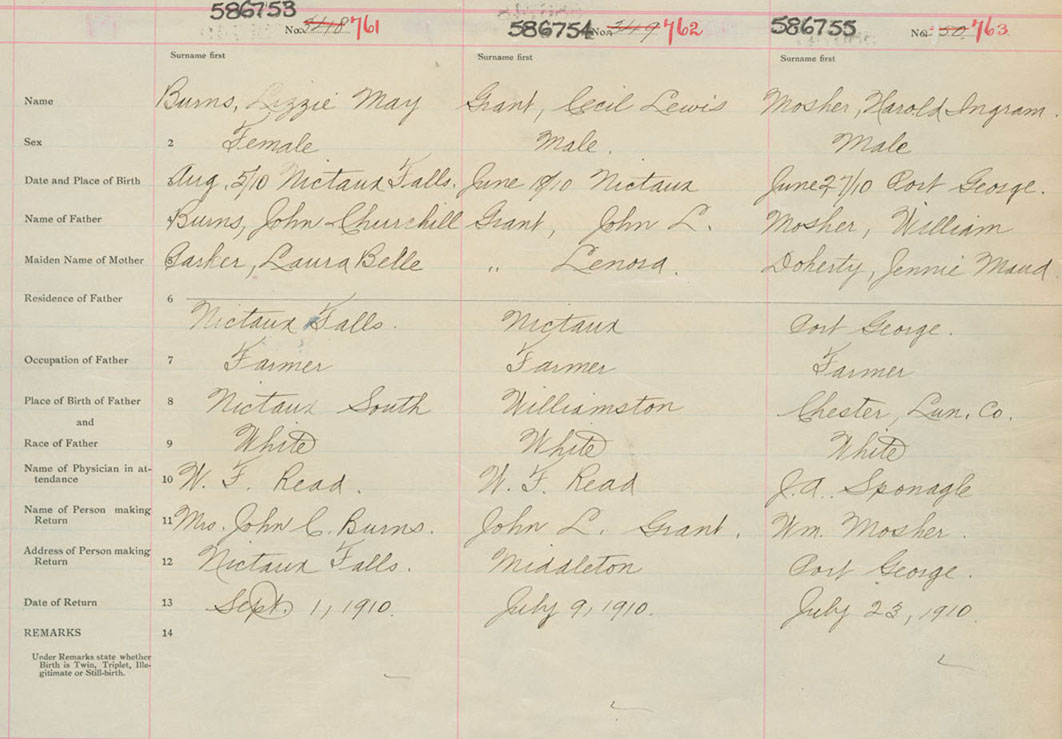 586753 No. 3218 761 586754 No. 3219 762 586755 No. 763
Surname first Surname first Surname first
Name Burns, Lizzie May Grant, Cecil Lewis Mosher, Harold Ingram.
Sex 2 Female Male. Male
Date and Place of Birth Aug. 5/10 Nictaux Falls. June 18/10 Nictaux June 27/10 Port George.
Name of Father 4 Burns, John Churchill Grant, John L. Mosher, William
Maiden Name of Mother 5 Parker, Laura Belle " Lenora. Doherty, Jennie Maud
Residence of Father 6
Nictaux Falls. Nictaux Port George.
Occupation of Father 7 Farmer Farmer Farmer
Place of Birth of Father 8 Nictaux South Williamston Chester, Lun. Co.
and
Race of Father 9 White White White
Name of Physician in at-
tendance 10 W. F. Read. W. F. Read J. A. Sponagle
Name of Person making
Return 11 Mrs. John C. Burns. John L. Grant. Wm. Mosher.
Address of Person making
Return 12 Nictaux Falls. Middleton Port George.
Date of Return 13 Sept. 1, 1910. July 9, 1910. July 23, 1910.
REMARKS 14
Under Remarks state whether
Birth is Twin, Triplet, Ille-
gitimate or Still-birth.